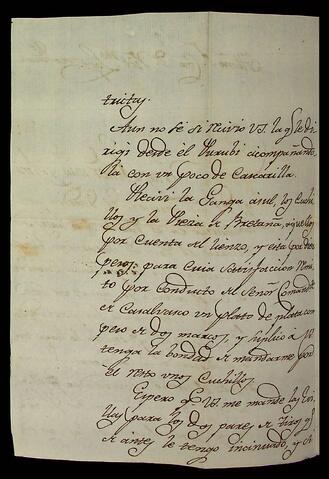 tritas.
Aun no sé si recivio VS. la q.e le di
rigí desde el Yurubi acompañando
la con un poco de Cascarilla.
Recivi la Ganga asul, los Cuchi
llos y la Pieza de Bretaña, aquellos
por cuenta del lienzo, y esta por dies
pesos: para cuia satisfaccion Remi
to por conducto del Señor Comand.te
de Casalvasco un plato de plata con
peso de dos marcos, y suplico a VS
tenga la bondad de mandarme por
el resto unos Cuchillos.
Espero q.e VS. me mande las
llas para los dos pares de tiros q.e
de antes le tengo incinuado, y